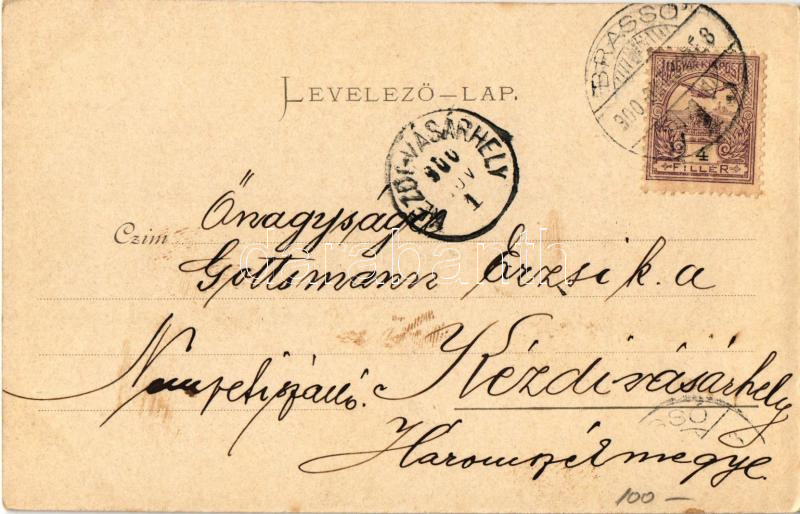 LEVELEZŐ–LAP.
BRASSÓ
900
MAGYAR KIR. POSTA
4
FILLÉR
KÉZDI-VÁSÁRHELY
900
NOV
1
Czim
Őnagysága
Gottsmann Erzsi k. a
Nemzeti szálló.
Kézdivásárhely
Háromszék megye.
darabanth
100 –